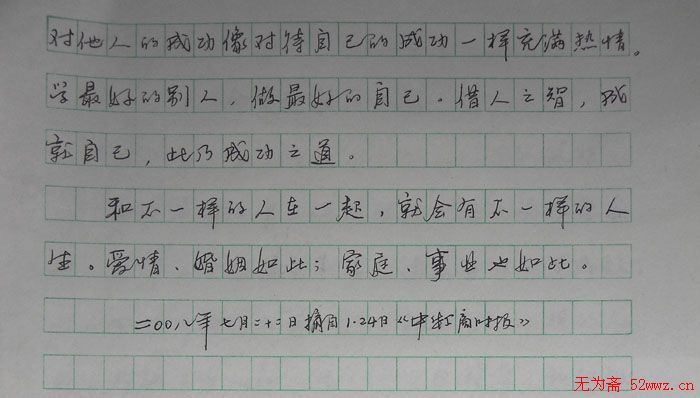 对他人的成功像对待自己的成功一样充满热情。
学最好的别人，做最好的自己。借人之智，成
就自己，此乃成功之道。
和不一样的人在一起，就会有不一样的人
生。爱情、婚姻如此；家庭、事业也如此。
二00八年七月二十二日摘自1.24日《中 商时报》
无为斋 52wwz.cn